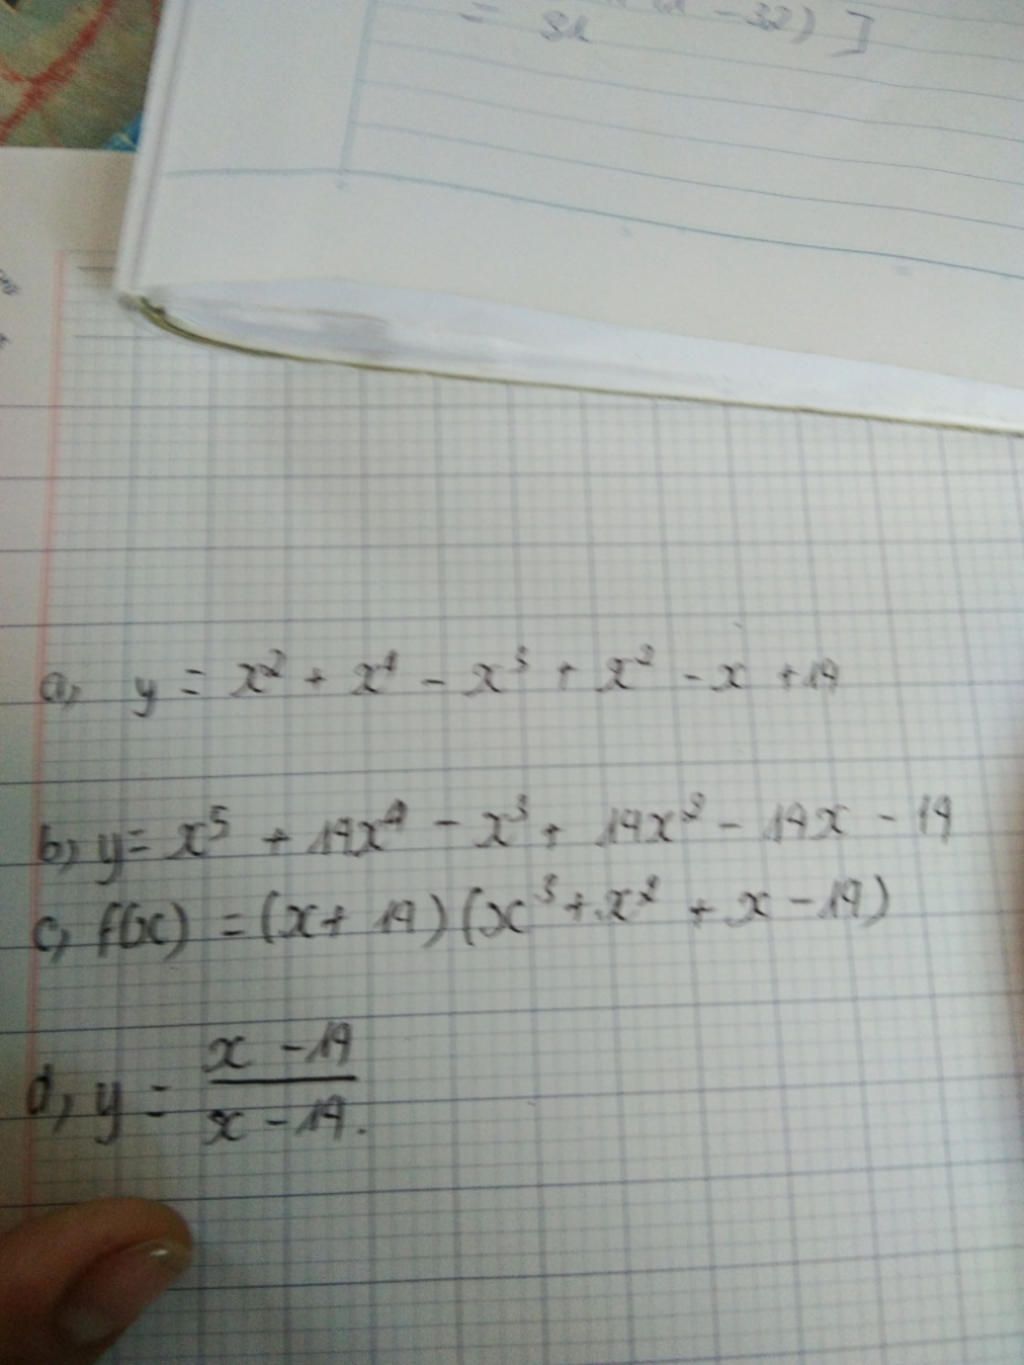 = 3x - 32) ]
a, y = x² + x⁴ - x³ + x² - x + 19
b, y = x⁵ + 19x⁴ - x³ + 19x² - 19x - 19
c, f(x) = (x + 19)(x³ + x² + x - 19)
d, y = x - 19
x - 19.